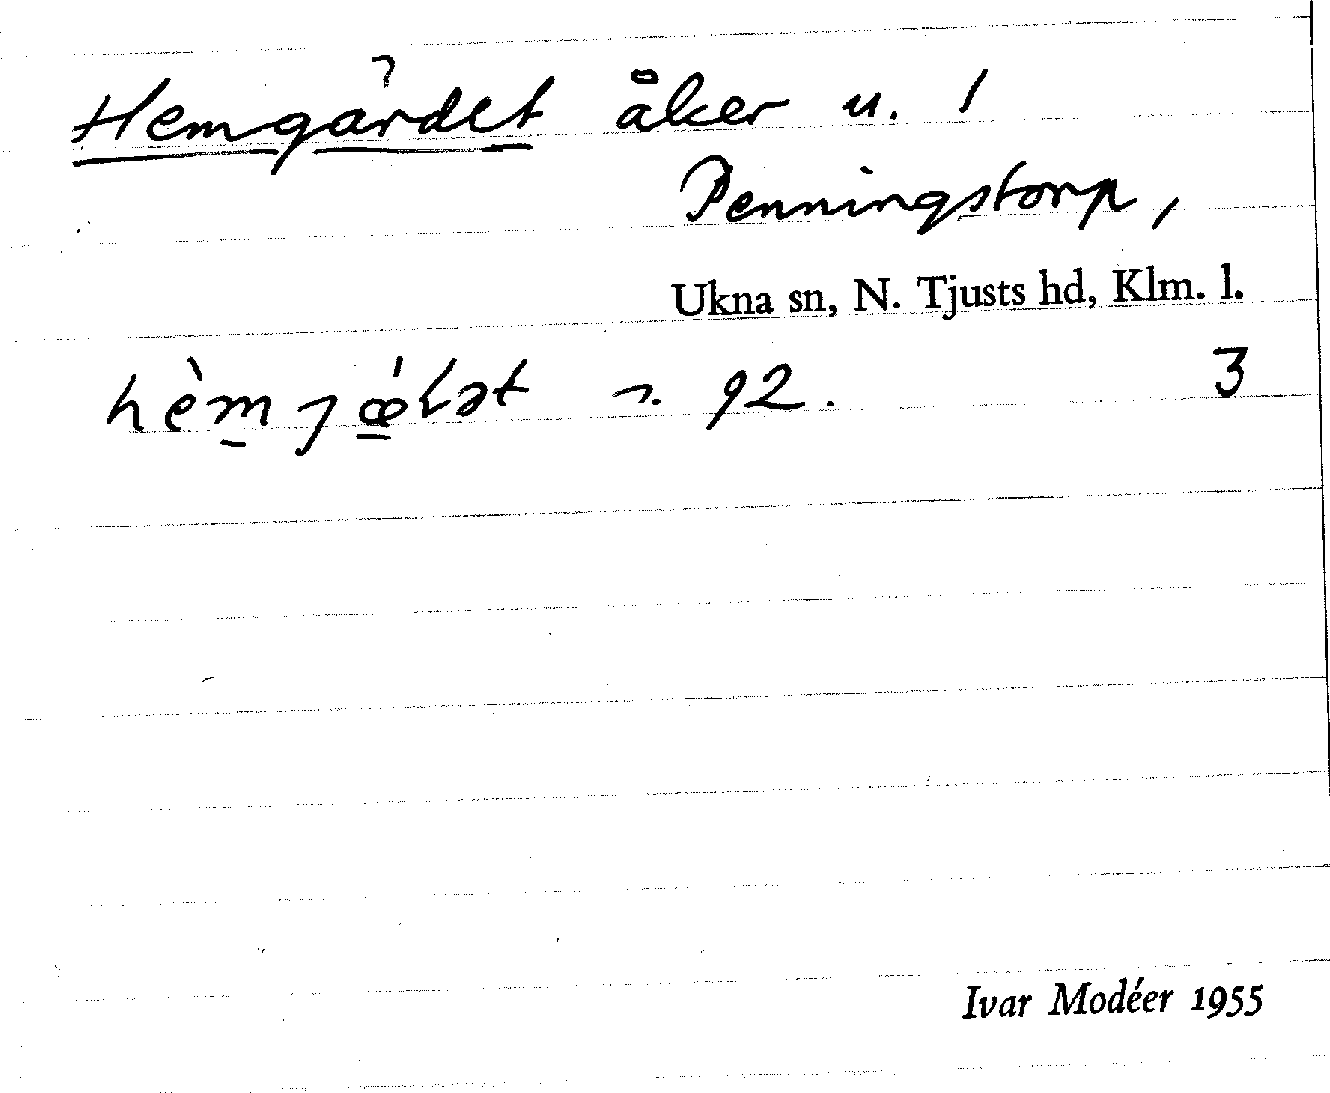 Hemgärdet åker u. 1
Penningstorp,
Ukna sn, N. Tjusts hd, Klm. l.
3
n. 92.
Ivar Modéer 1955